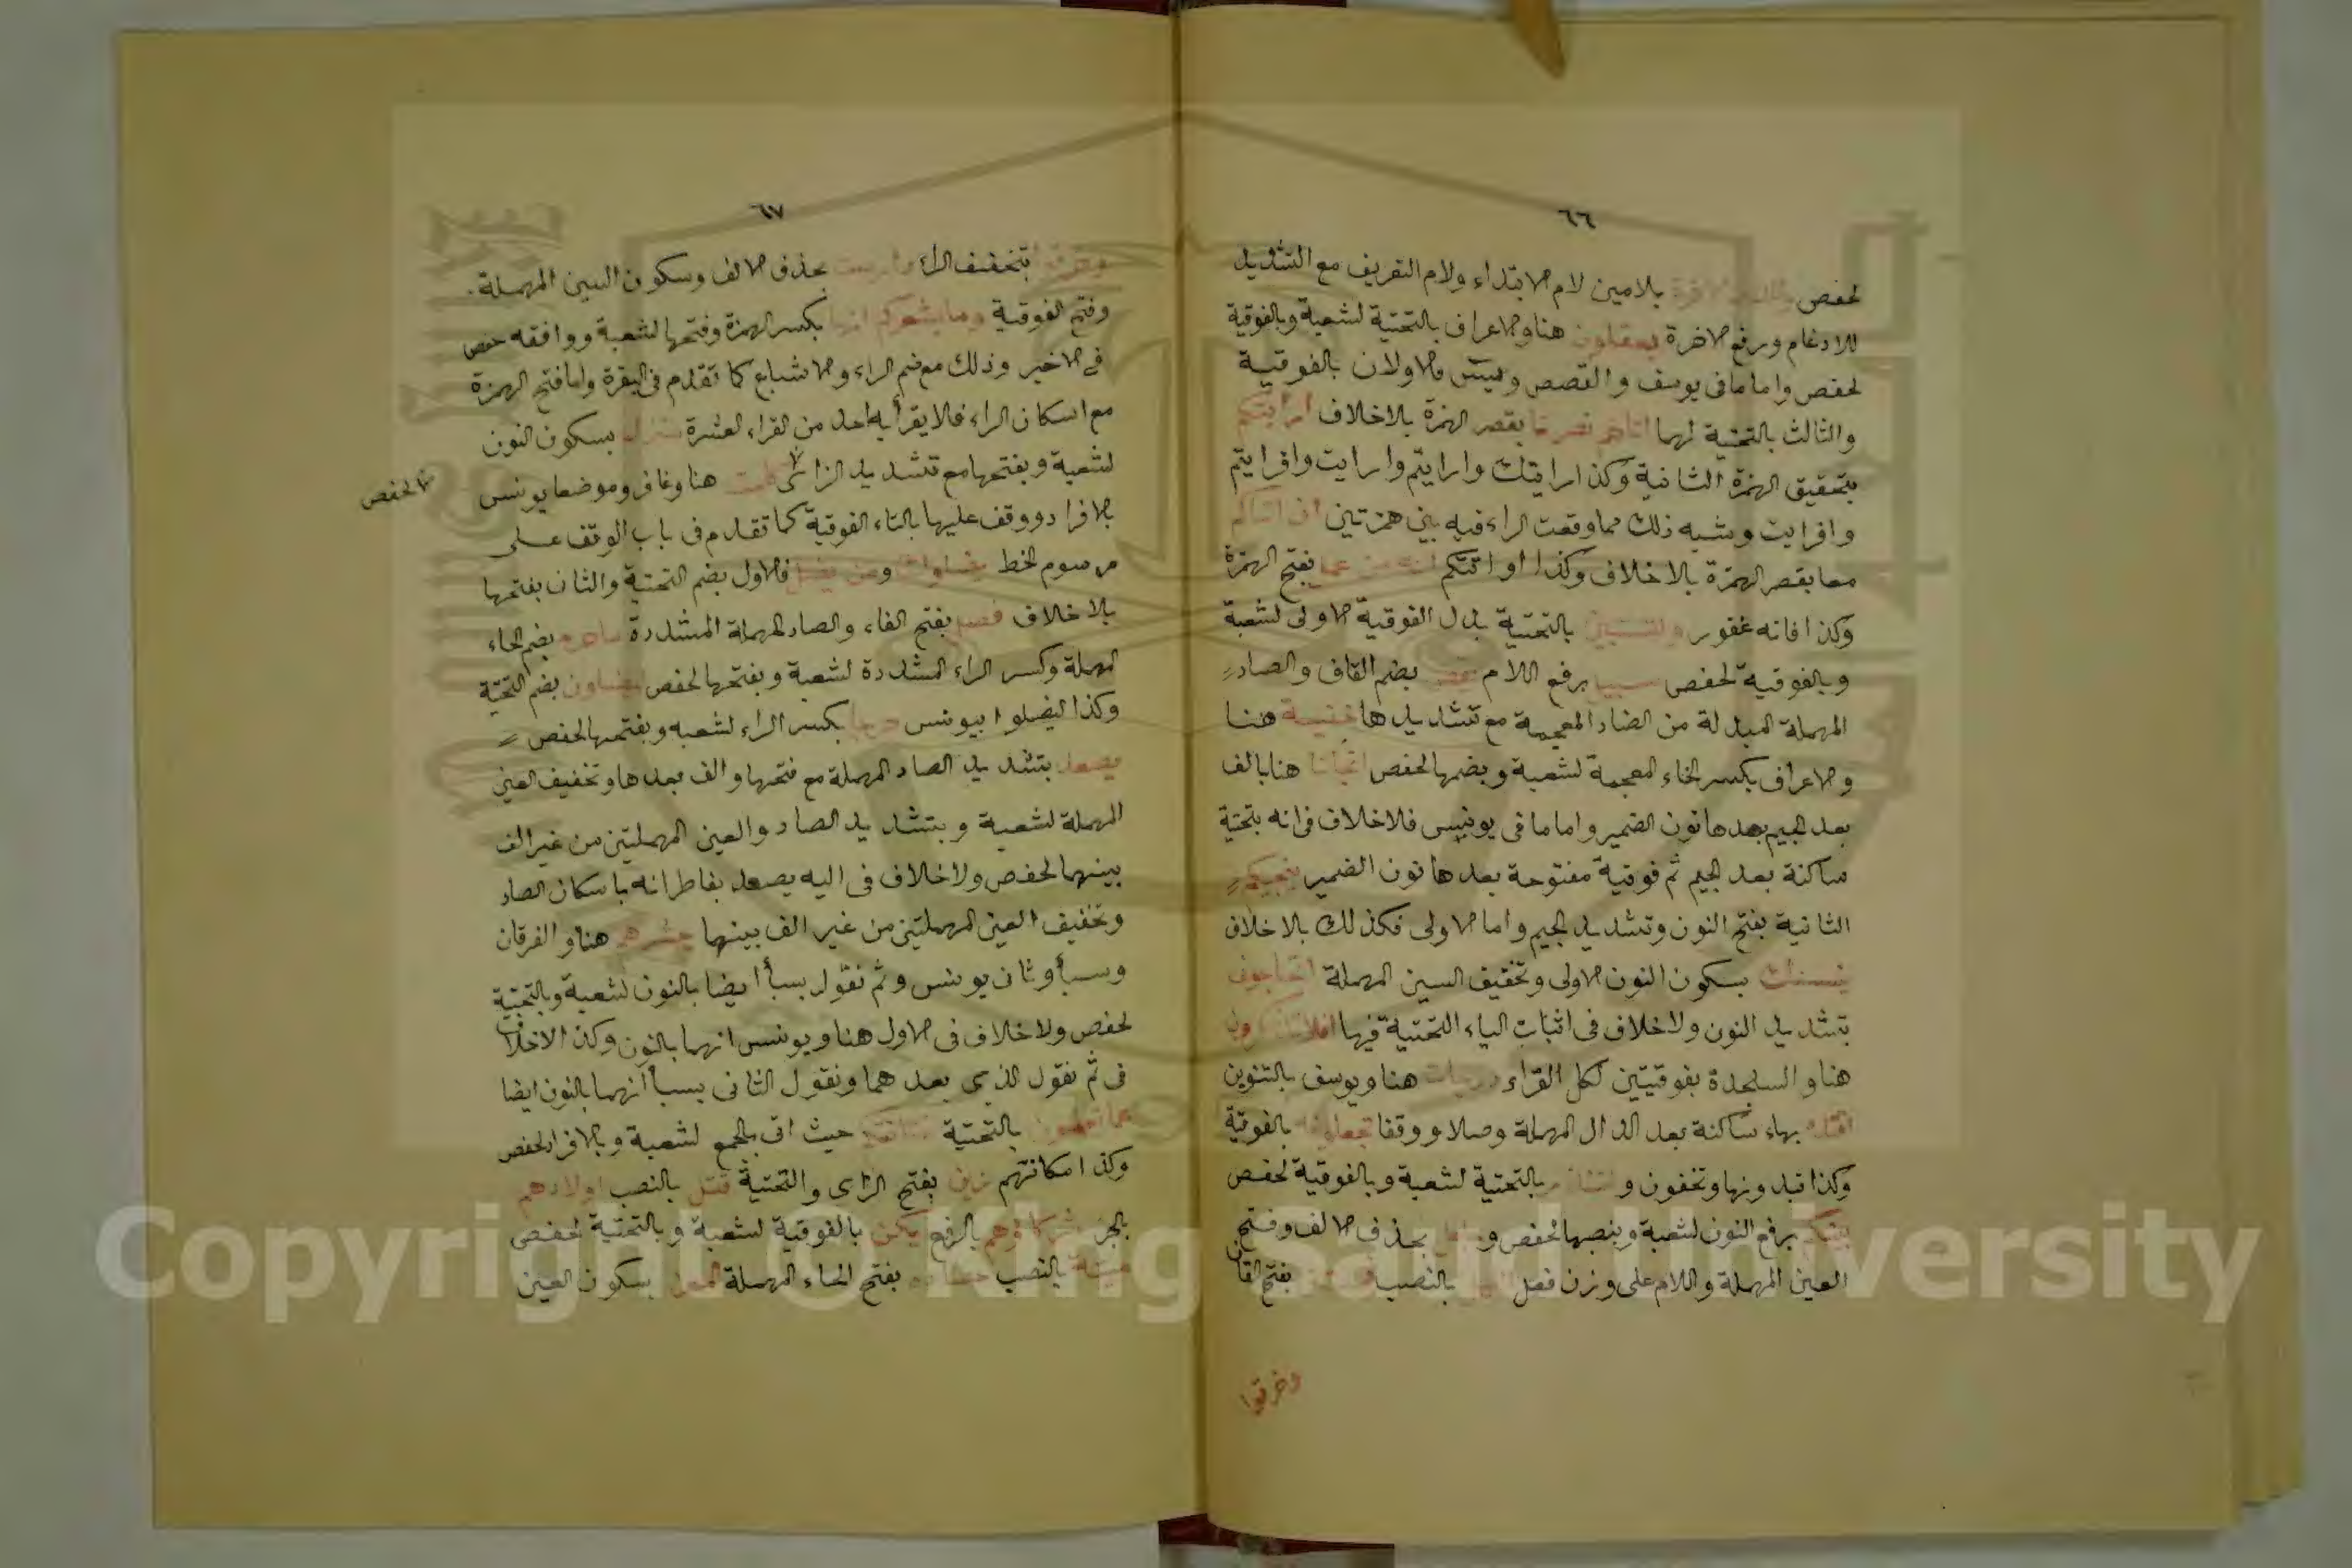 ٦٦
لحفص وللدار الاخرة بلامين لام الابتداء ولام التعريف مع التشديد
للادغام ورفع الاخرة يعقلون هنا والاعراف بالتحتية لشعبة وبالفوقية
لحفص واما ما فى يوسف والقصص ويس فالاولان بالفوقية
والثالث بالتحتية لهما اتاهم نصرنا بقصر الهمزة بلاخلاف ارايتكم
بتحقيق الهمزة الثانية وكذا ارايتك وارايتم وارايت وافرايتم
وافرايت وشبه ذلك مما وقعت الراء فيه بين همزتين ان اتاكم
معا بقصر الهمزة بلاخلاف وكذا او اتتكم انه من عمل بفتح الهمزة
وكذا فانه غفور ولتستبين بالتحتية بدل الفوقية الاولى لشعبة
وبالفوقية لحفص سبيل برفع اللام يقص بضم القاف والصاد
المهملة المبدلة من الضاد المعجمة مع تشديدها خفية هنا
والاعراف بكسر الخاء المعجمة لشعبة وبضمها لحفص انجانا هنا بالف
بعد الجيم بعدها نون الضمير واما ما فى يونس فلاخلاف فى انه بتحتية
ساكنة بعد الجيم ثم فوقية مفتوحة بعدها نون الضمير ينجيكم
الثانية بفتح النون وتشديد الجيم واما الاولى فكذلك بلاخلاف
ينسنك بسكون النون الاولى وتخفيف السين المهملة اتحاجونى
بتشديد النون ولاخلاف فى اثبات الياء التحتية فيها افلا تتذكرون
هنا والسجدة بفوقيتين لكل القراء درجات هنا ويوسف بالتنوين
اقتده بهاء ساكنة بعد الدال المهملة وصلا ووقفا تجعلونه بالفوقية
وكذا تبدونها وتخفون ولتنذر بالتحتية لشعبة وبالفوقية لحفص
بينكم برفع النون لشعبة وبنصبها لحفص وجعل بحذف الالف وفتح
العين المهملة واللام على وزن فعل الليل بالنصب فمستقر بفتح القاف
وخرقوا
٦٧
وخرقوا بتخفيف الراء درست بحذف الالف وسكون السين المهملة
وفتح الفوقية وما يشعركم انها بكسر الهمزة وفتحها لشعبة ووافقه حفص
فى الاخير وذلك مع ضم الراء والاشباع كما تقدم فى البقرة واما فتح الهمزة
مع اسكان الراء فلا يقرأ به احد من القراء العشرة منزل بسكون النون
لشعبة وبفتحها مع تشديد الزاى كلمت هنا وغافر وموضعا يونس
لحفص
بالافراد ووقف عليها بالتاء الفوقية كما تقدم فى باب الوقف على
مرسوم الخط يضلوا ومن يضل فالاول بضم التحتية والثان بفتحها
بلاخلاف فصل بفتح الفاء والصاد المهملة المشددة ما حرم بضم الحاء
المهملة وكسر الراء المشددة لشعبة وبفتحها لحفص ليضلون بضم التحتية
وكذا ليضلوا بيونس حرجا بكسر الراء لشعبه وبفتحها لحفص
يصعد بتشديد الصاد المهملة مع فتحها والف بعدها وتخفيف العين
المهملة لشعبة وبتشديد الصاد والعين المهملتين من غير الف
بينهما لحفص ولاخلاف فى اليه يصعد بفاطر انه باسكان الصاد
وتخفيف العين المهملتين من غير الف بينهما يحشرهم هنا والفرقان
وسبأ وثانى يونس وثم نقول بسبأ ايضا بالنون لشعبة وبالتحتية
لحفص ولا خلاف فى الاول هنا ويونس انهما بالنون وكذا لاخلاف
فى ثم نقول الذى بعدهما ونقول الثانى بسبأ انهما بالنون ايضا
عما تعملون بالتحتية مكانتكم حيث اتى بالجمع لشعبة وبالافراد لحفص
وكذا مكانتهم زين بفتح الزاى والتحتية قتل بالنصب اولادهم
بالجر شركاؤهم بالرفع يكن بالفوقية لشعبة وبالتحتية لحفص
ميتة بالنصب حصاده بفتح الحاء المهملة المعز بسكون العين
Copyright © King Saud University